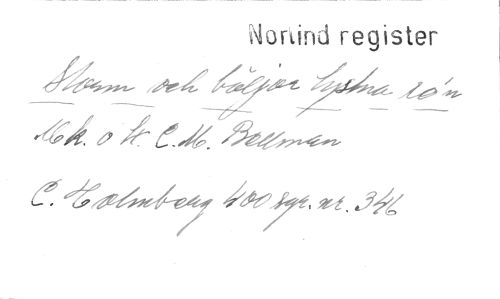 Norlind register
Storm och böljor tystna ro'n
Mk. o tr. C. M. Bellman
C. Holmberg 400 syr. nr. 346